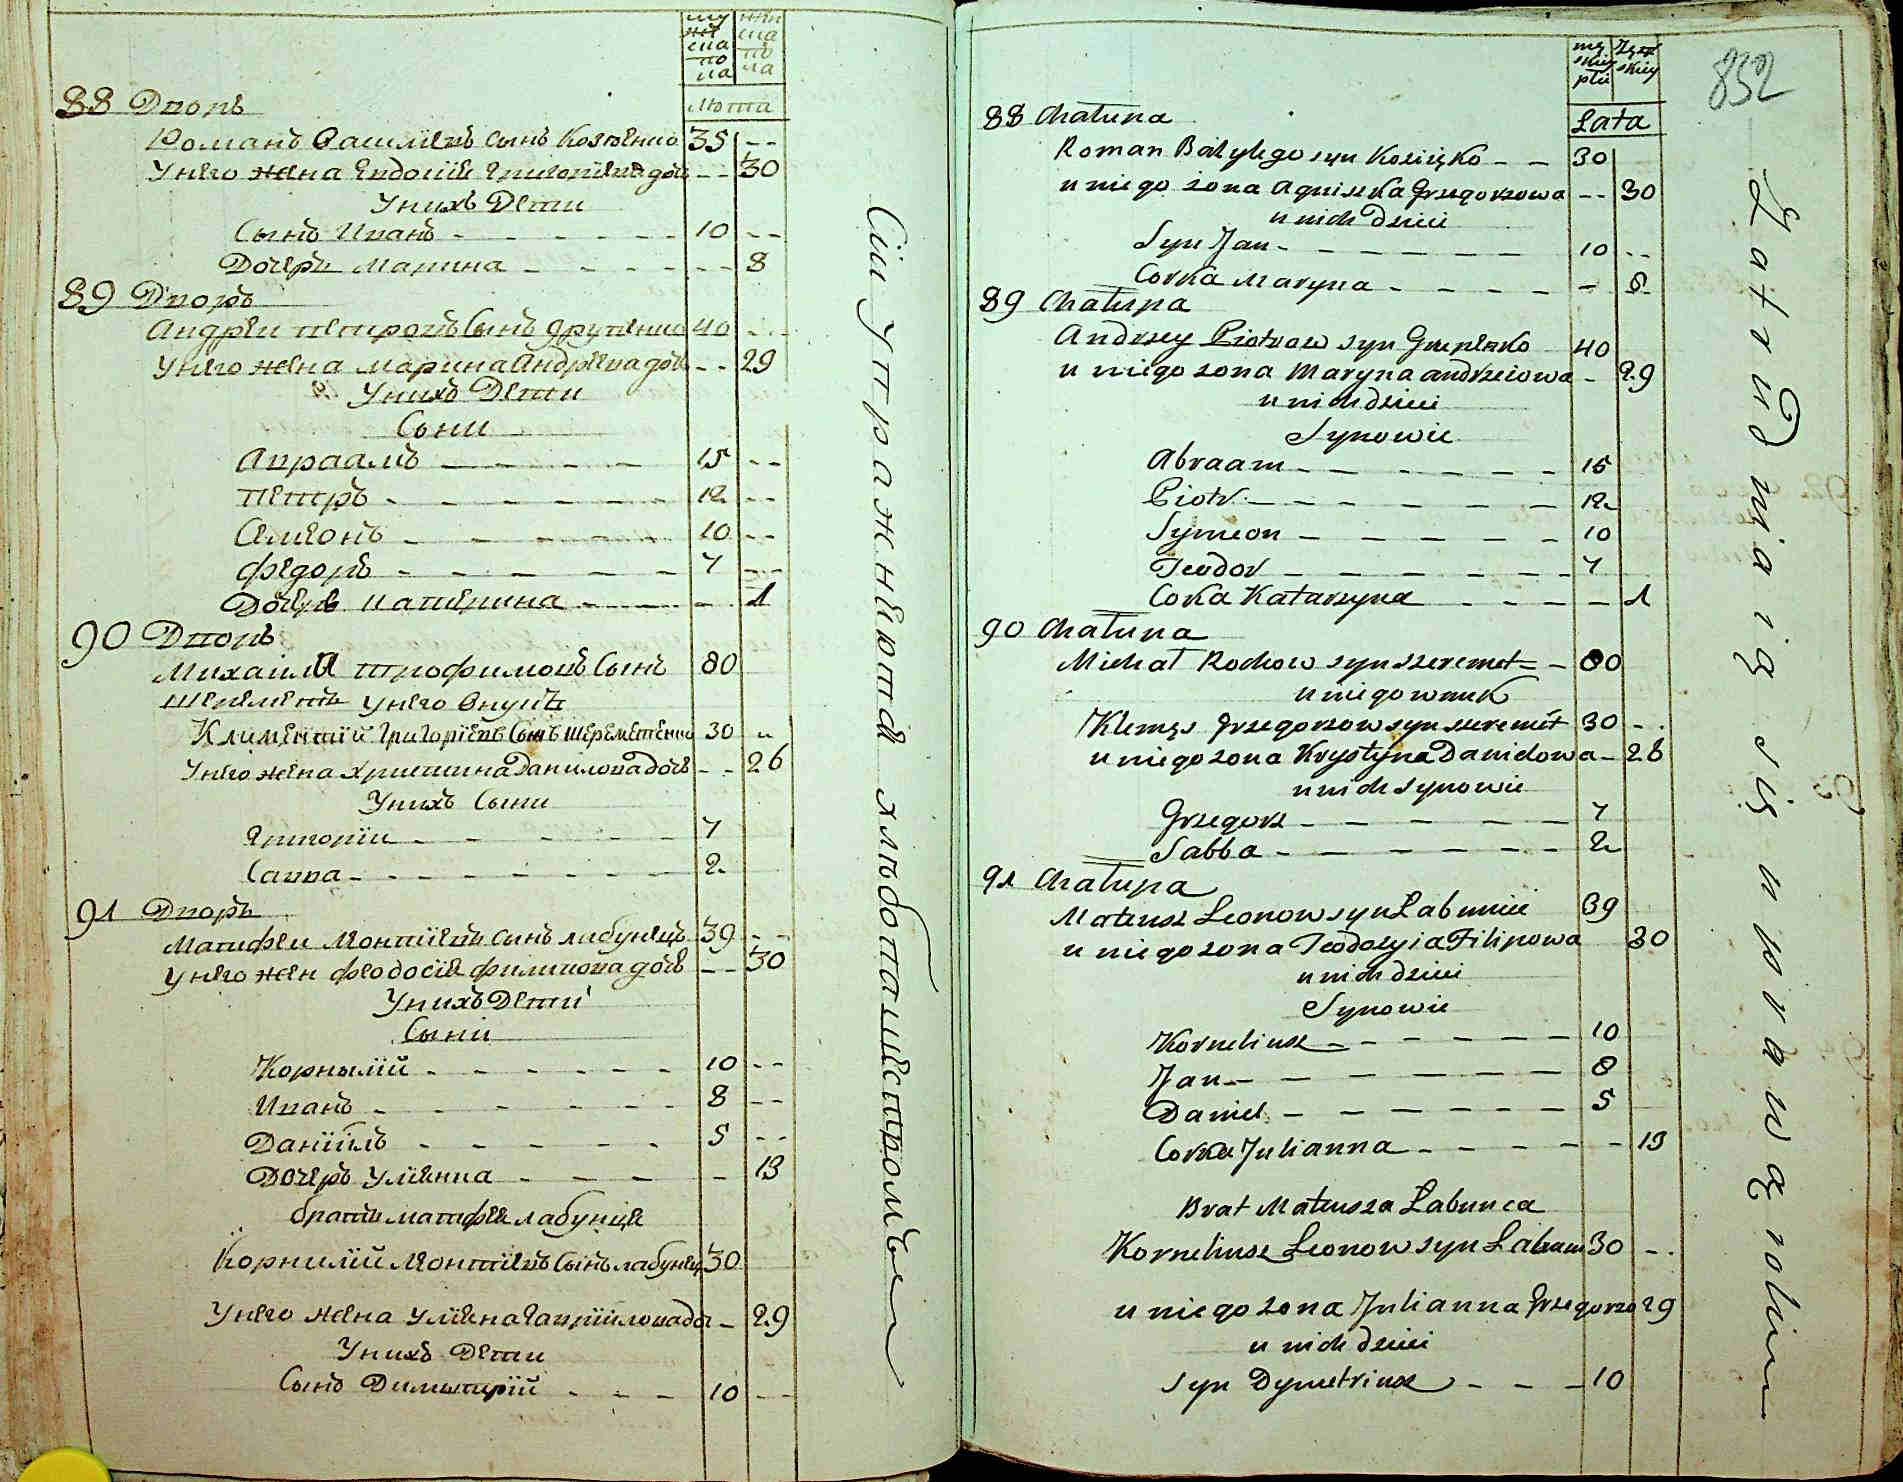 му
жес
ска
по
ла
жен
ска
по
ла
Люта
88 Дворъ
Романъ Василіевъ сынъ Козленко 35 --
Унего жена Евдокіе Григоріева дочь -- 30
Унихъ Дети
Сынъ Иванъ - - - - - - 10 --
Дочерь Марина - - - - - - 8
89 Дворъ
Андреи петровъ Сынъ 40 --
Унего жена марина Андреева дочь -- 29
Унихъ Дети
Сыни
Авраамъ - - - - - 15 --
петръ - - - - - - 12 --
Симеонъ - - - - - 10 --
Федоръ - - - - - - 7 --
Дочерь Катерина - - - - 1
90 Дворъ
Михаила трофимовъ Сынъ 80
Шереметъ унего Внукъ
Климентій Григоріевъ Сынъ Шереметенко 30 "
Унего жена христина Данилова дочь -- 26
Унихъ Сыни
Григоріи - - - - - - 7
Савва - - - - - - - 2
91 Дворъ
Матфеи Леонтіевъ сынъ лабунецъ 39 --
Унего жен феодосія филипова дочь -- 30
Унихъ Дети
Сыни
Корнылій - - - - - - 10 --
Иванъ - - - - - - - 8 --
Даніилъ - - - - - - 5 --
Дочерь Уліянна - - - - - 13
братъ матфея лабунця
Корнилій Леонтіевъ Сынъ лабунец 30
Унего жена Уліяна Гавріилова доч - 29
Унихъ Дети
Сынъ Димитрій - - - 10 --
Сіи упражняются хлѣбопашествомъ
832
mę
skiey
płci
Zęń
skiey
Lata
88 Chałupa
Roman Bazylego syn Kozięko - - 30
u niego żona Agniszka Grzegorzowa -- 30
u nich Dzieci
Syn Jan - - - - - - - 10 --
Corka Maryna - - - - - - 8
89 Chałupa
Andrzey Piotrow syn 40
u niego zona Maryna andrzeiowa - 29
u nich dzieci
Synowie
Abraam - - - - - - - 15
Piotr - - - - - - - 12
Symeon - - - - - - 10
Teodor - - - - - - - 7
Corka Katarzyna - - - - - 1
90 Chałupa
Michał Rochow syn szeremet - 80
u niego wnuk
Klemęs Grzegorzow syn szeremet 30 --
u niego zona Krystyna Danidowa - 26
u nich synowie
Grzegorz - - - - - - 7
Sabba - - - - - - - 2
91 Chałupa
Mateusz Leonow syn Łabuniec 39
u niego zona Teodozyia Filipowa 30
u nich dzieci
Synowie
Korneliusz - - - - - - 10
Jan - - - - - - - 8
Daniel - - - - - - 5
Corka Julianna - - - - - 13
Brat Mateusza Łabunca
Korneliusz Leonow syn Łabun 30 --
u niego zona Julianna Grzegorzo 29
u nich dzieci
syn Dymetriusz - - - 10
Zatrudniaią się uprawą rolin